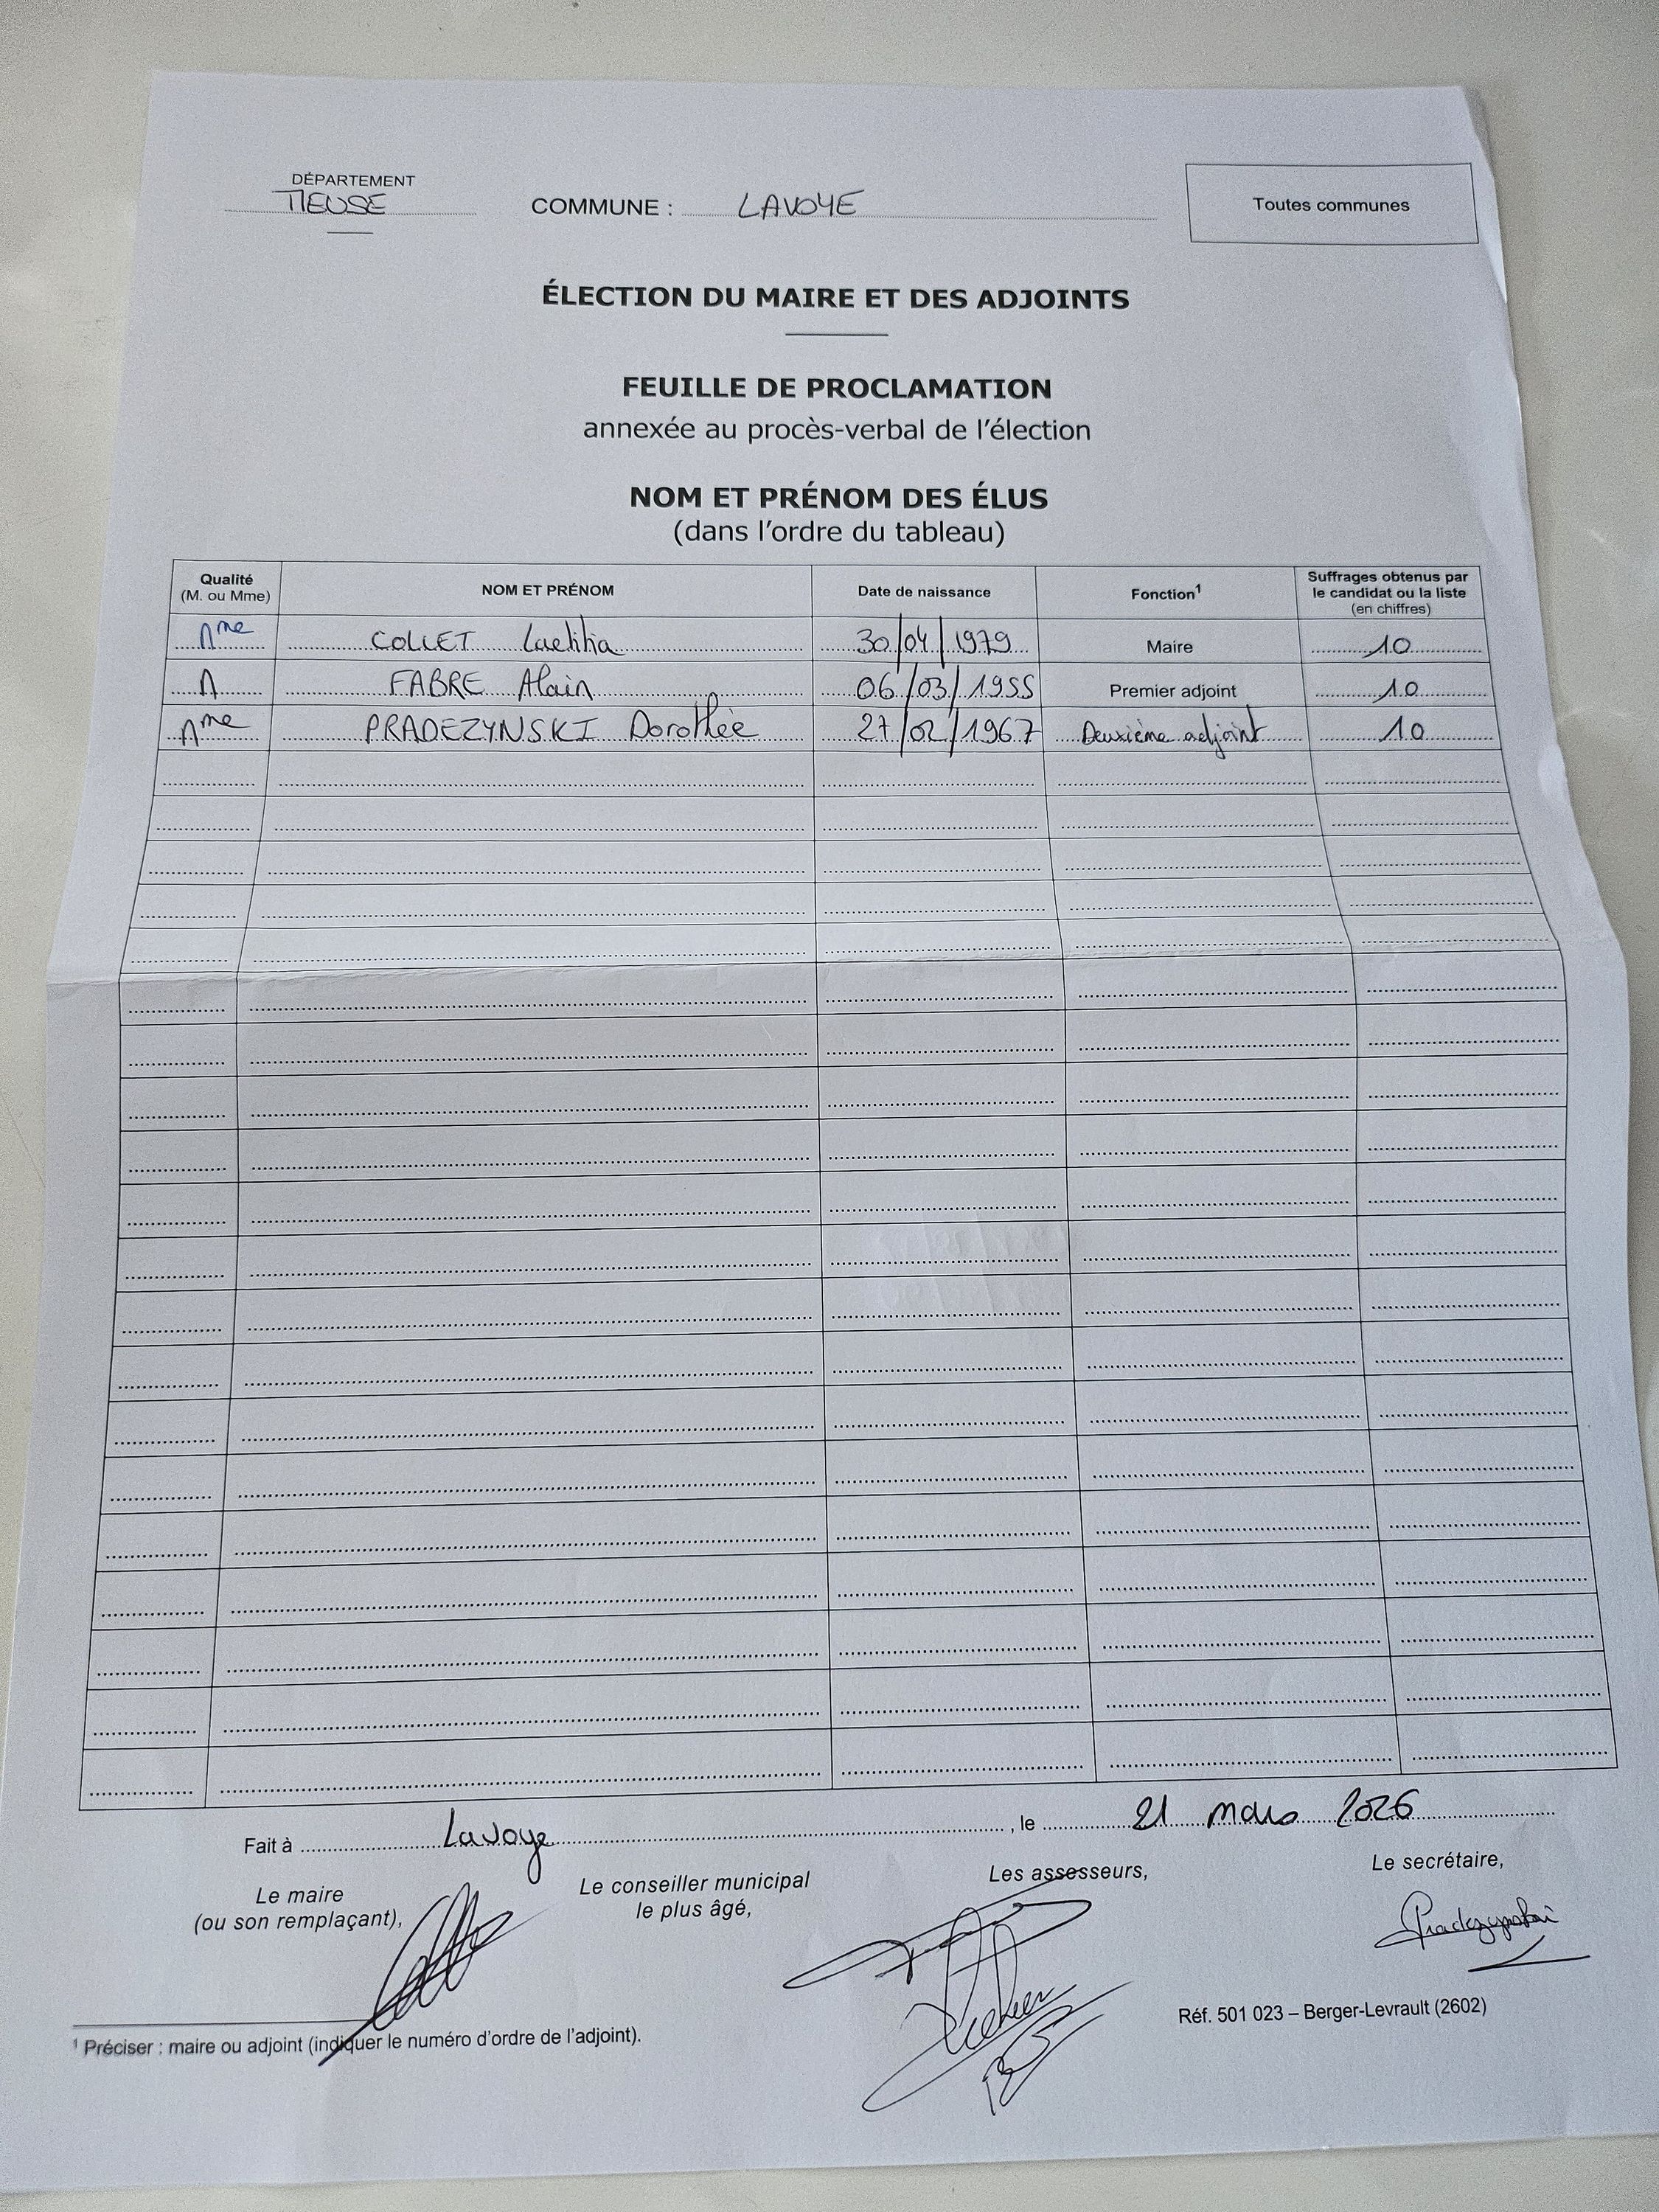 DÉPARTEMENT
MEUSE
COMMUNE : LAVOYE
Toutes communes
ÉLECTION DU MAIRE ET DES ADJOINTS
FEUILLE DE PROCLAMATION
annexée au procès-verbal de l'élection
NOM ET PRÉNOM DES ÉLUS
(dans l'ordre du tableau)
Qualité (M. ou Mme) NOM ET PRÉNOM Date de naissance Fonction¹ Suffrages obtenus par le candidat ou la liste (en chiffres)
Mme COLLET Laetitia 30/04/1979 Maire 10
M FABRE Alain 06/03/1955 Premier adjoint 10
Mme PRADEZYNSKI Dorothée 27/02/1967 Deuxième adjoint 10
Fait à Lavoye, le 21 mars 2026
Le maire
(ou son remplaçant),
Le conseiller municipal
le plus âgé,
Les assesseurs,
Le secrétaire,
Pradezynski
Réf. 501 023 – Berger-Levrault (2602)
¹ Préciser : maire ou adjoint (indiquer le numéro d'ordre de l'adjoint).